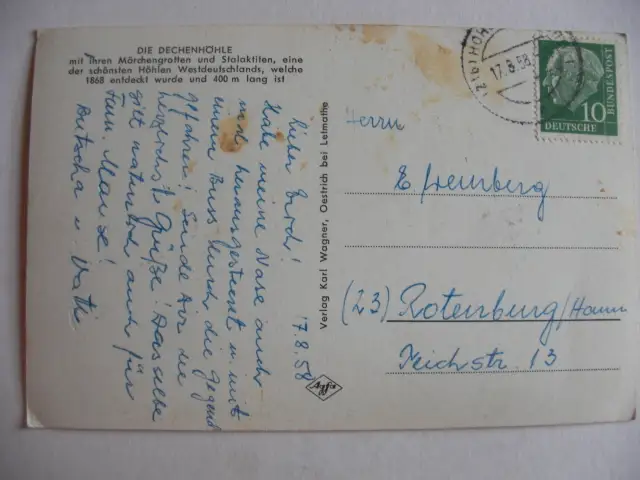 DIE DECHENHÖHLE
mit ihren Märchengrotten und Stalaktiten, eine
der schönsten Höhlen Westdeutschlands, welche
1868 entdeckt wurde und 400 m lang ist
17.8.58
Lieber
Habe meine Nase auch
mal herausgesteckt u. mit
einem Bus durch die Gegend
gefahren! Sende Dir die
herzlichste Grüße! Dasselbe
gilt natürlich auch für
Mause!
u. Vati
Verlag Karl Wagner, Oestrich bei Letmathe
Agfa
17.8.58
10
DEUTSCHE
BUNDESPOST
Herrn
E Fremberg
(23) Rotenburg/Hann
13